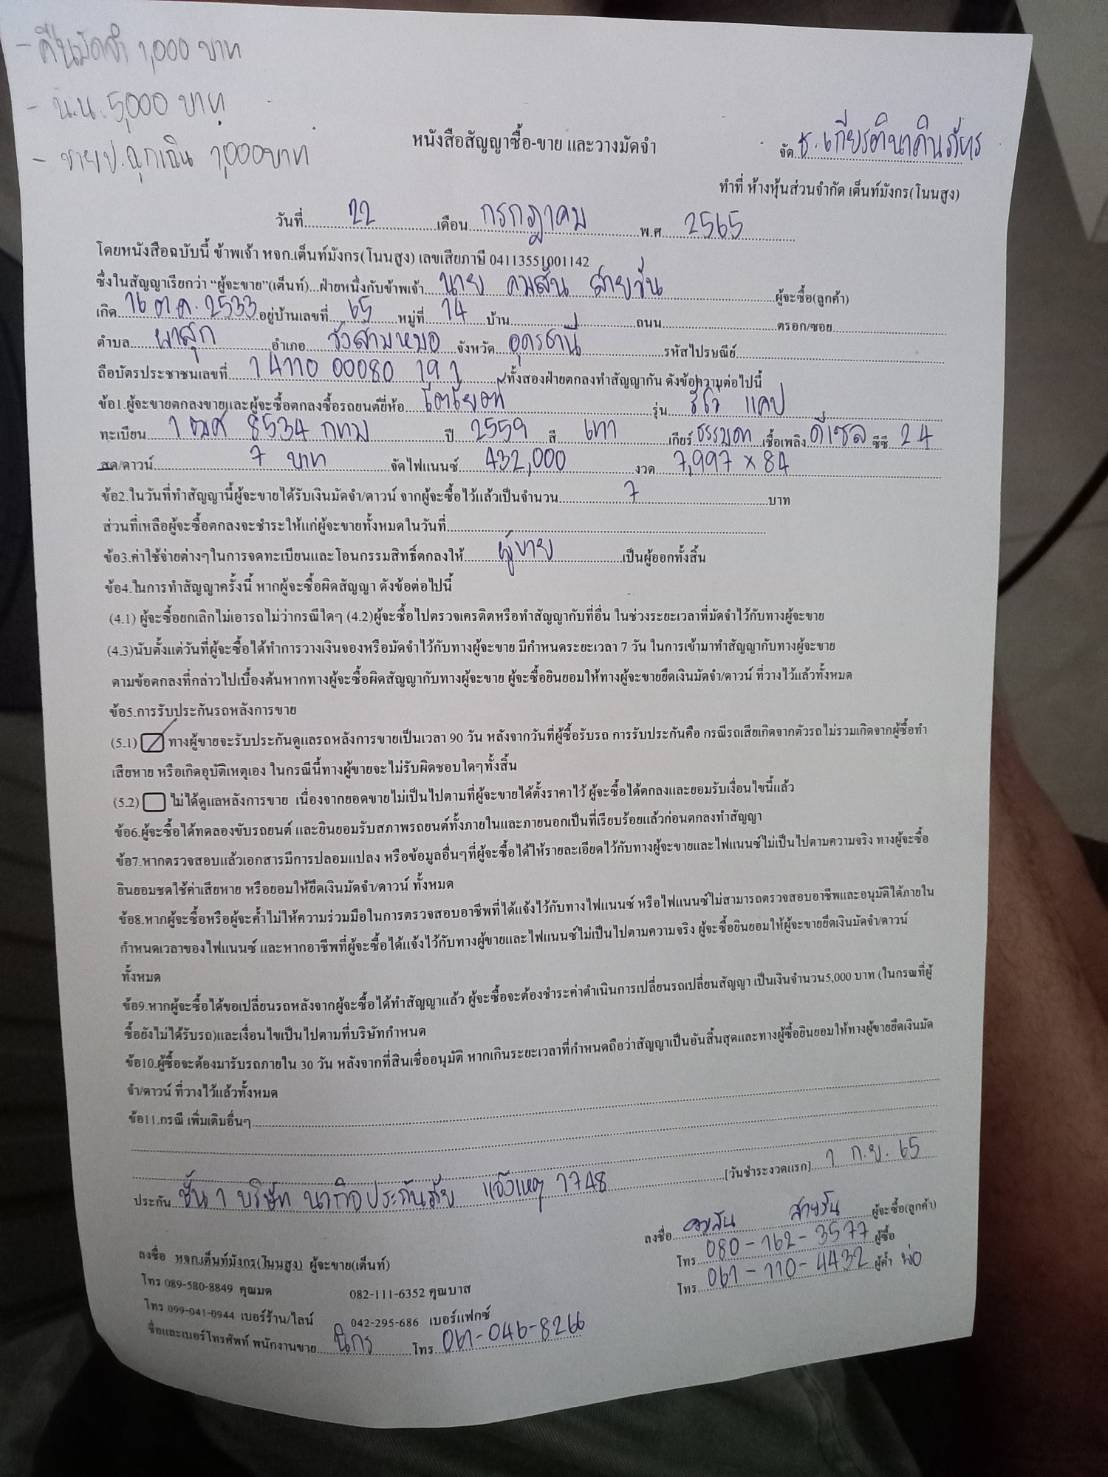 - คืนมัดจำ 1,000 บาท
- น.น. 5,000 บาท
- ขายป.ฉุกเฉิน 1,000 บาท
หนังสือสัญญาซื้อ-ขาย และวางมัดจำ
จัด ธ.เกียรตินาคินภัทร
ทำที่ ห้างหุ้นส่วนจำกัด เต็นท์มังกร(โนนสูง)
วันที่ 22 เดือน กรกฎาคม พ.ศ. 2565
โดยหนังสือฉบับนี้ ข้าพเจ้า หจก.เต็นท์มังกร(โนนสูง) เลขเสียภาษี 04113551001142
ซึ่งในสัญญาเรียกว่า "ผู้จะขาย"(เต็นท์)...ฝ่ายหนึ่งกับข้าพเจ้า นาย คมสัน สายวัน ผู้จะซื้อ(ลูกค้า)
เกิด 16 ต.ค. 2533 อยู่บ้านเลขที่ 65 หมู่ที่ 14 บ้าน ถนน ตรอก/ซอย
ตำบล ผาสุก อำเภอ วังสามหมอ จังหวัด อุดรธานี รหัสไปรษณีย์
ถือบัตรประชาชนเลขที่ 1 4110 00080 19 1 ทั้งสองฝ่ายตกลงทำสัญญากัน ดังข้อความต่อไปนี้
ข้อ1.ผู้จะขายตกลงขายและผู้จะซื้อตกลงซื้อรถยนต์ยี่ห้อ โตโยต้า รุ่น รีโว่ แคป
ทะเบียน 1 ฒศ 8534 กทม ปี 2559 สี เทา เกียร์ ธรรมดา เชื้อเพลิง ดีเซล ซีซี 2.4
สด/ดาวน์ 7 บาท จัดไฟแนนซ์ 432,000 งวด 7,997 x 84
ข้อ2.ในวันที่ทำสัญญานี้ผู้จะขายได้รับเงินมัดจำ/ดาวน์ จากผู้จะซื้อไว้แล้วเป็นจำนวน 7 บาท
ส่วนที่เหลือผู้จะซื้อตกลงจะชำระให้แก่ผู้จะขายทั้งหมดในวันที่
ข้อ3.ค่าใช้จ่ายต่างๆในการจดทะเบียนและโอนกรรมสิทธิ์ตกลงให้ ผู้ขาย เป็นผู้ออกทั้งสิ้น
ข้อ4.ในการทำสัญญาครั้งนี้ หากผู้จะซื้อผิดสัญญา ดังข้อต่อไปนี้
(4.1) ผู้จะซื้อยกเลิกไม่เอารถไม่ว่ากรณีใดๆ (4.2)ผู้จะซื้อไปตรวจเครดิตหรือทำสัญญากับที่อื่น ในช่วงระยะเวลาที่มัดจำไว้กับทางผู้จะขาย
(4.3)นับตั้งแต่วันที่ผู้จะซื้อได้ทำการวางเงินจองหรือมัดจำไว้กับทางผู้จะขาย มีกำหนดระยะเวลา 7 วัน ในการเข้ามาทำสัญญากับทางผู้จะขาย
ตามข้อตกลงที่กล่าวไปเบื้องต้นหากทางผู้จะซื้อผิดสัญญากับทางผู้จะขาย ผู้จะซื้อยินยอมให้ทางผู้จะขายยึดเงินมัดจำ/ดาวน์ ที่วางไว้แล้วทั้งหมด
ข้อ5.การรับประกันรถหลังการขาย
(5.1) ทางผู้ขายจะรับประกันดูแลรถหลังการขายเป็นเวลา 90 วัน หลังจากวันที่ผู้ซื้อรับรถ การรับประกันคือ กรณีรถเสียเกิดจากตัวรถไม่รวมเกิดจากผู้ซื้อทำ
เสียหาย หรือเกิดอุบัติเหตุเอง ในกรณีนี้ทางผู้ขายจะไม่รับผิดชอบใดๆทั้งสิ้น
(5.2) ไม่ได้ดูแลหลังการขาย เนื่องจากยอดขายไม่เป็นไปตามที่ผู้จะขายได้ตั้งราคาไว้ ผู้จะซื้อได้ตกลงและยอมรับเงื่อนไขนี้แล้ว
ข้อ6.ผู้จะซื้อได้ทดลองขับรถยนต์ และยินยอมรับสภาพรถยนต์ทั้งภายในและภายนอกเป็นที่เรียบร้อยแล้วก่อนตกลงทำสัญญา
ข้อ7.หากตรวจสอบแล้วเอกสารมีการปลอมแปลง หรือข้อมูลอื่นๆที่ผู้จะซื้อได้ให้รายละเอียดไว้กับทางผู้จะขายและไฟแนนซ์ไม่เป็นไปตามความจริง ทางผู้จะซื้อ
ยินยอมชดใช้ค่าเสียหาย หรือยอมให้ยึดเงินมัดจำ/ดาวน์ ทั้งหมด
ข้อ8.หากผู้จะซื้อหรือผู้จะค้ำไม่ให้ความร่วมมือในการตรวจสอบอาชีพที่ได้แจ้งไว้กับทางไฟแนนซ์ หรือไฟแนนซ์ไม่สามารถตรวจสอบอาชีพและอนุมัติได้ภายใน
กำหนดเวลาของไฟแนนซ์ และหากอาชีพที่ผู้จะซื้อได้แจ้งไว้กับทางผู้ขายและไฟแนนซ์ไม่เป็นไปตามความจริง ผู้จะซื้อยินยอมให้ผู้จะขายยึดเงินมัดจำ/ดาวน์
ทั้งหมด
ข้อ9.หากผู้จะซื้อได้ขอเปลี่ยนรถหลังจากผู้จะซื้อได้ทำสัญญาแล้ว ผู้จะซื้อจะต้องชำระค่าดำเนินการเปลี่ยนรถเปลี่ยนสัญญา เป็นเงินจำนวน5,000 บาท (ในกรณีที่ผู้
ซื้อยังไม่ได้รับรถ)และเงื่อนไขเป็นไปตามที่บริษัทกำหนด
ข้อ10.ผู้ซื้อจะต้องมารับรถภายใน 30 วัน หลังจากที่สินเชื่ออนุมัติ หากเกินระยะเวลาที่กำหนดถือว่าสัญญาเป็นอันสิ้นสุดและทางผู้ซื้อยินยอมให้ทางผู้ขายยึดเงินมัด
จำ/ดาวน์ ที่วางไว้แล้วทั้งหมด
ข้อ11.กรณี เพิ่มเติมอื่นๆ
(วันชำระงวดแรก) 1 ก.ย. 65
ประกัน ชั้น 1 บริษัท นวกิจประกันภัย แจ้งเหตุ 1748
ลงชื่อ คมสัน สายวัน ผู้จะซื้อ(ลูกค้า)
โทร 080-162-3577 ผู้ซื้อ
โทร 061-110-4432 ผู้ค้ำ พ่อ
ลงชื่อ หจก.เต็นท์มังกร(โนนสูง) ผู้จะขาย(เต็นท์)
โทร 089-580-8849 คุณมด 082-111-6352 คุณบาส
โทร 099-041-0944 เบอร์ร้าน/ไลน์ 042-295-686 เบอร์แฟกซ์
ชื่อและเบอร์โทรศัพท์ พนักงานขาย นิกร โทร 061-046-8266